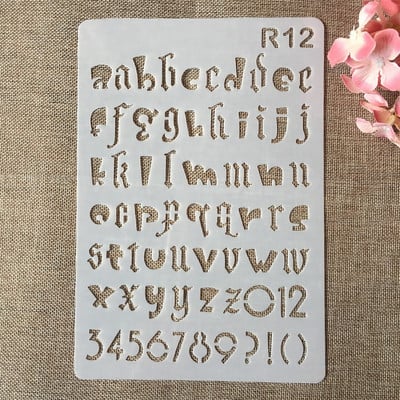 R12
aabbccddee
effgghhiijj
kkllmmnn
ooppqqrrs
sttuuvvww
xxyyzz012
3456789?!()